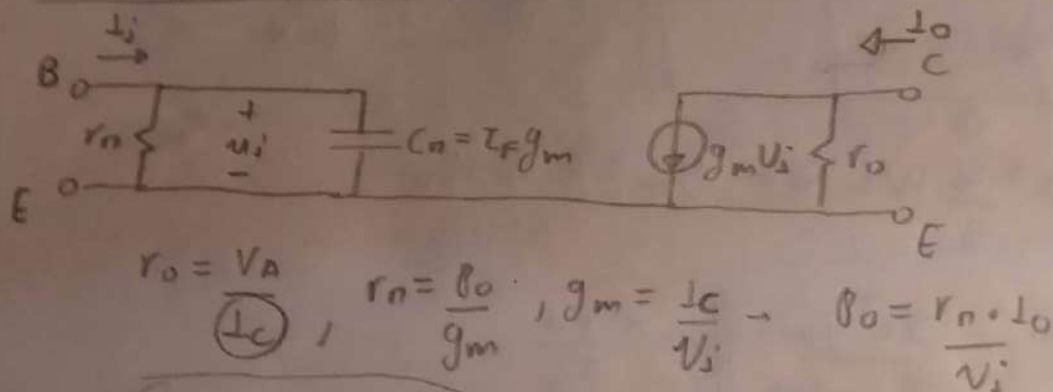 Ii
Io
B
C
+
rπ
υi
-
Cπ = τF gm
gm υi
ro
E
E
ro = VA / IC , rπ = βo / gm , gm = IC / Vi → βo = rπ · Io / Vi